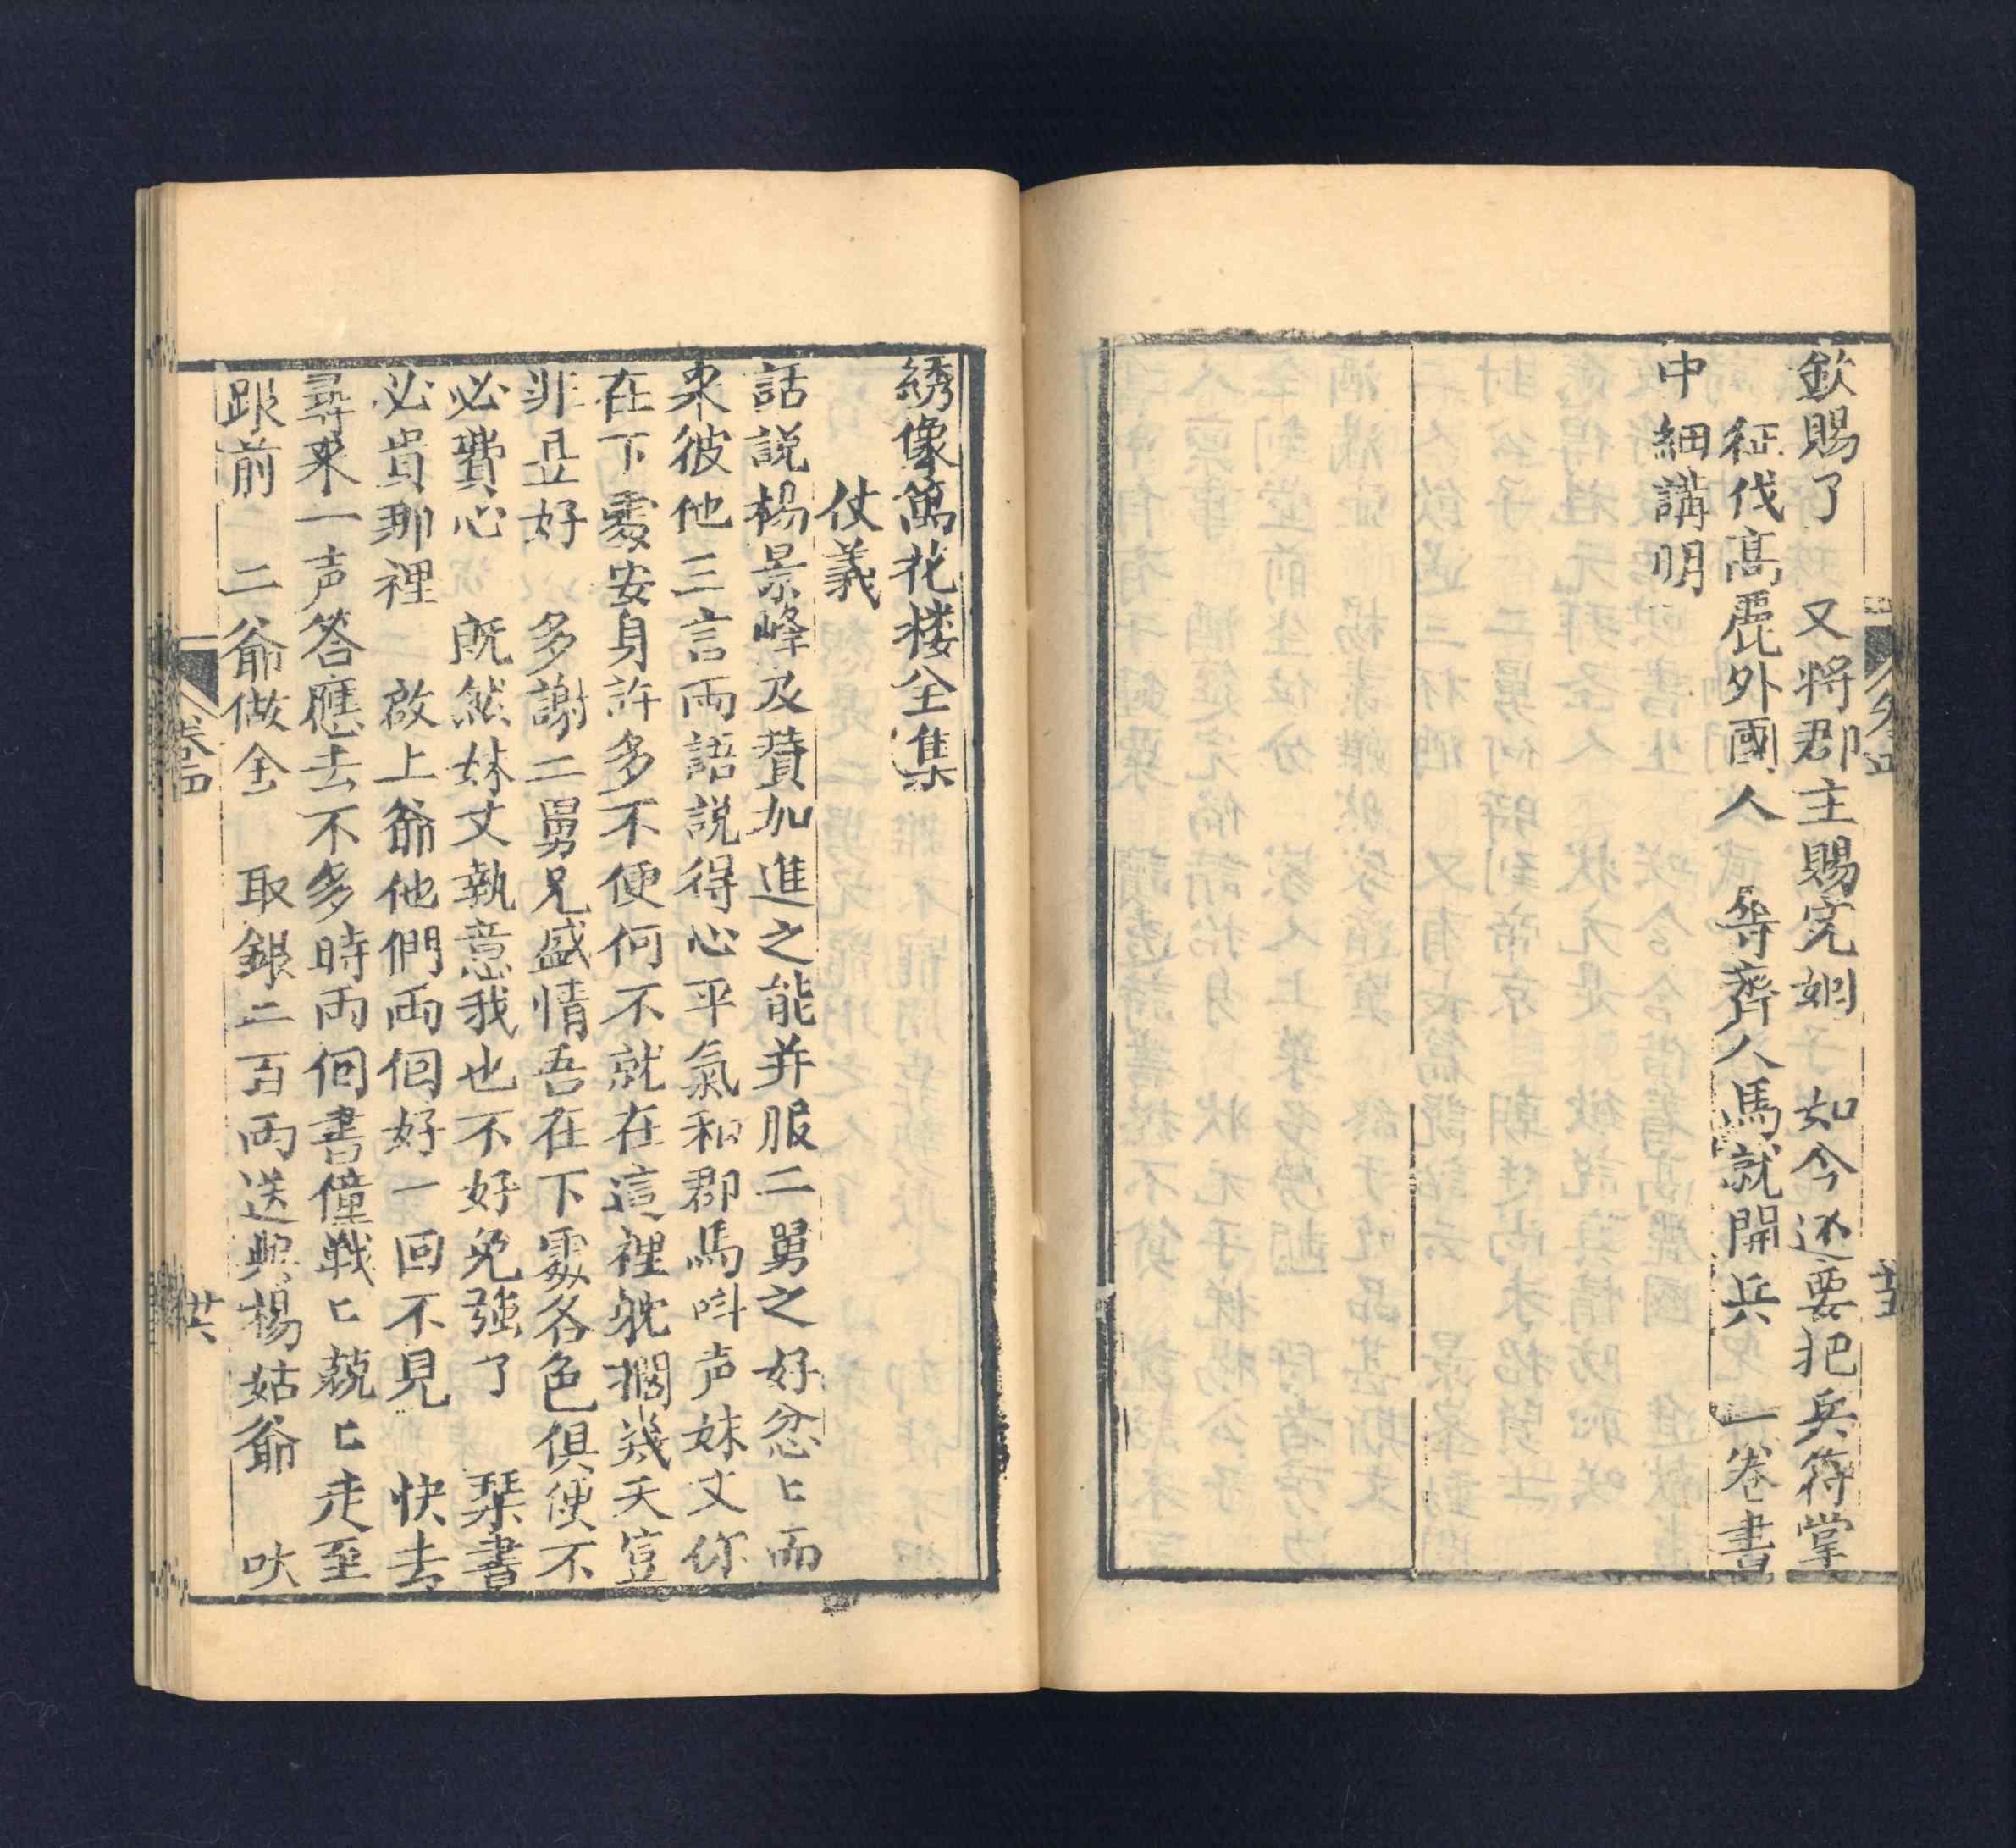 欽賜了　又將郡主賜完姻　如今还要把兵符掌
征伐髙麗外國人　等齊人馬就開兵　一卷書
中細講明
綉像萬花楼全集
仗義
話説楊景峰及賛加進之能并服二舅之好忿匕而
來彼他三言兩語説得心平氣和郡馬呌声妹丈你
在下處安身許多不便何不就在這裡躭擱幾天豈
非並好　多謝二舅兄盛情吾在下處各色俱便不
必費心　既然妹丈執意我也不好免強了　琹書
必貴那裡　啟上爺他們兩個好一回不見　快去
尋來一声答應去不多時兩個書僮戦匕兢匕走至
跟前　二爺做全　取銀二百兩送與楊姑爺　吠
卷四
卄六